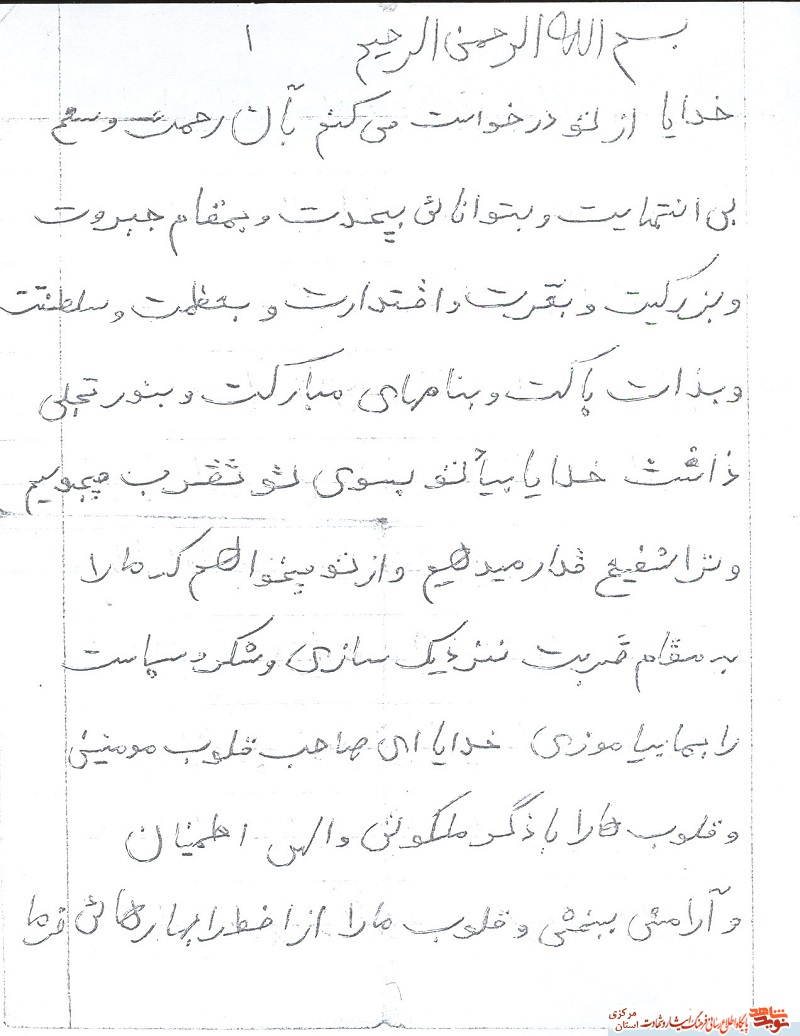 بسم الله الرحمن الرحیم
۱
خدایا از تو درخواست می کنم بآن رحمت وسیع
بی انتهایت و بتوانائی بیحدت و بمقام جبروت
و بزرگیت و بقربت و اقتدارت و بعظمت و سلطنتت
و بذات پاکت و بنامهای مبارکت و بنور تجلی
ذاتت خدایا بیأتو بسوی تو تقرب میجویم
و ترا شفیع قرار میدهیم و از تو میخواهم که ما را
به مقام قربت نزدیک سازی و شکر و سپاست
را بما بیاموزی خدایا ای صاحب قلوب مومنین
و قلوب ما را با ذکر ملکوتی و الهی اطمینان
و آرامش ببخش و قلوب ما را از اضطرابها رهائی فرما
نوید شاهد
پایگاه اطلاع رسانی فرهنگ ایثار و شهادت
مرکزی
استان